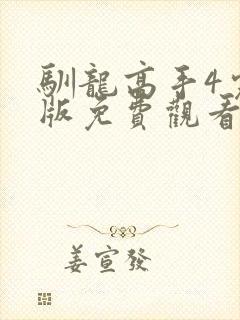 馴龍高手4完
版免費觀看
姜宣發